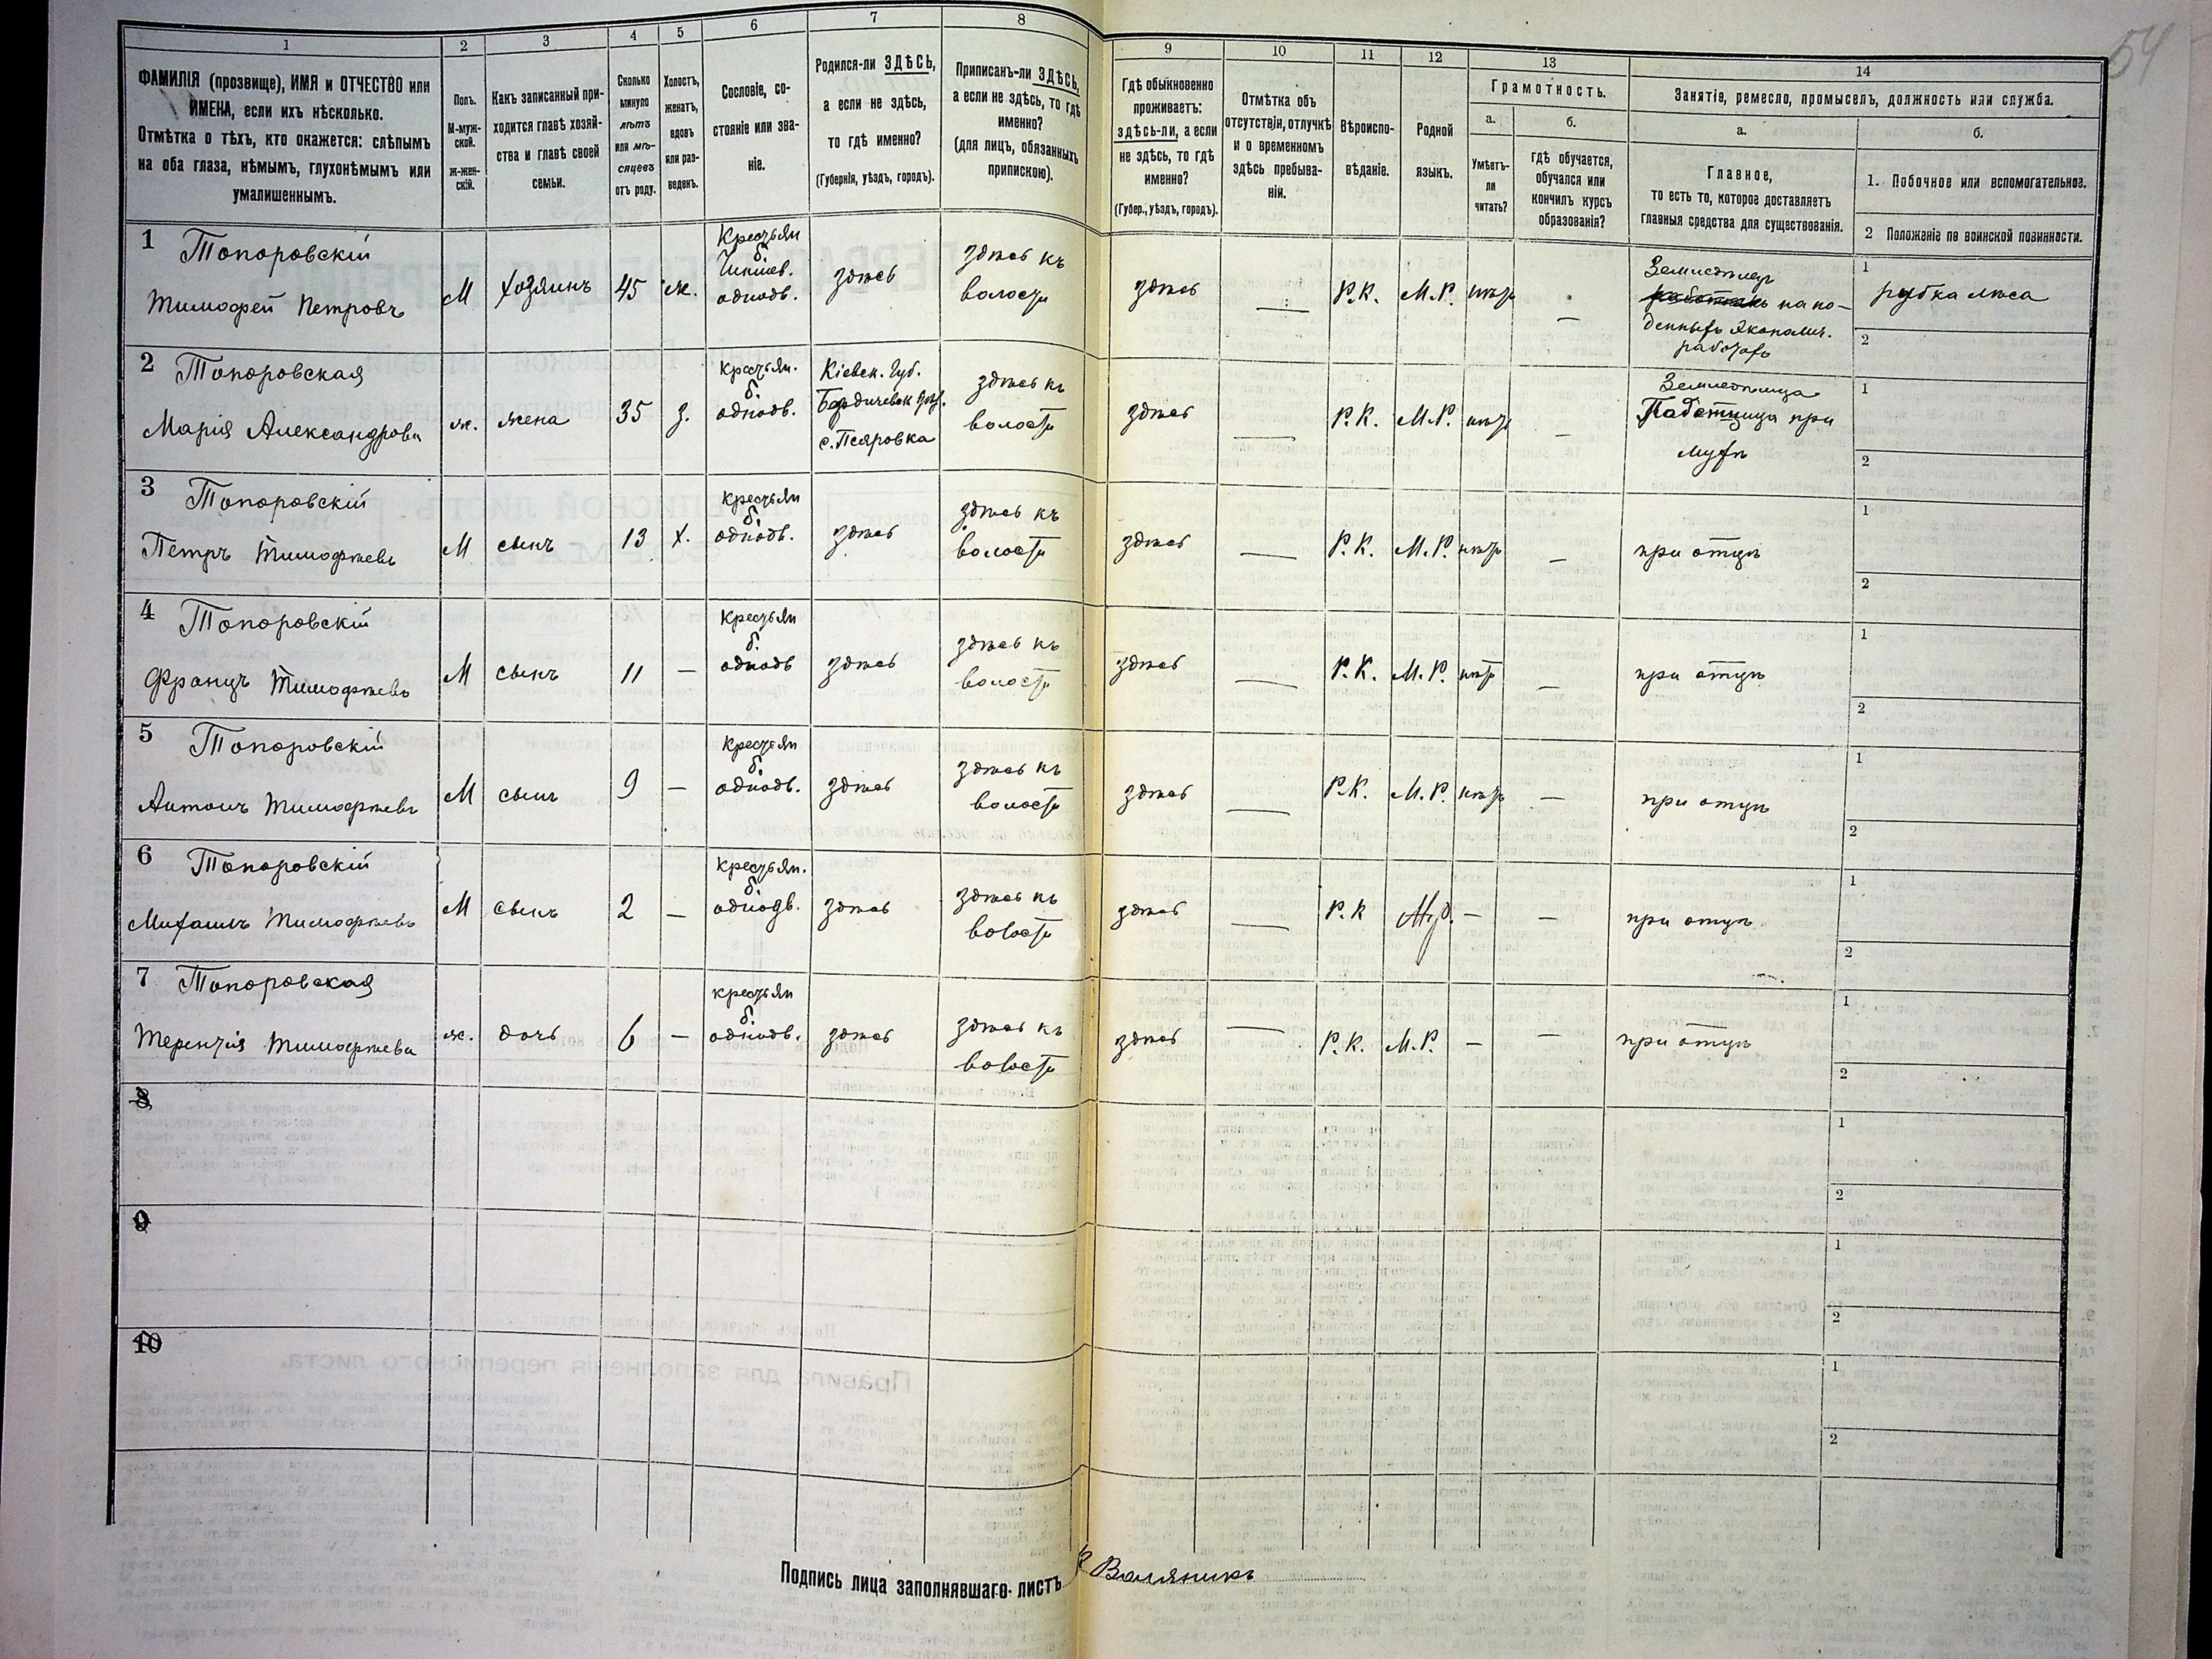 54
1 2 3 4 5 6 7 8 9 10 11 12 13 14
ФАМИЛІЯ (прозвище), ИМЯ и ОТЧЕСТВО или
ИМЕНА, если ихъ нѣсколько.
Отмѣтка о тѣхъ, кто окажется: слѣпымъ
на оба глаза, нѣмымъ, глухонѣмымъ или
умалишеннымъ.
Полъ.
М-муж-
ской.
Ж-жен-
скій.
Какъ записанный при-
ходится главѣ хозяй-
ства и главѣ своей
семьи.
Сколько
минуло
лѣтъ
или мѣ-
сяцевъ
отъ роду.
Холостъ,
женатъ,
вдовъ
или раз-
веденъ.
Сословіе, со-
стояніе или зва-
ніе.
Родился-ли ЗДѢСЬ,
а если не здѣсь,
то гдѣ именно?
(Губернія, уѣздъ, городъ).
Приписанъ-ли ЗДѢСЬ,
а если не здѣсь, то гдѣ
именно?
(для лицъ, обязанныхъ
припискою).
Гдѣ обыкновенно
проживаетъ:
здѣсь-ли, а если
не здѣсь, то гдѣ
именно?
(Губер., уѣздъ, городъ).
Отмѣтка объ
отсутствіи, отлучкѣ
и о временномъ
здѣсь пребыва-
ніи.
Вѣроиспо-
вѣданіе.
Родной
языкъ.
Грамотность.
а.
Умѣетъ-
ли
читать?
б.
гдѣ обучается,
обучался или
кончилъ курсъ
образованія?
Занятія, ремесло, промыселъ, должность или служба.
а.
Главное,
то есть то, которое доставляетъ
главныя средства для существованія.
б.
1. Побочное или вспомогательное.
2 Положеніе по воинской повинности.
1 Топоровскій
Тимофей Петровъ
М
Хозяинъ
45
ж.
Крестьян
б.
Чиншев.
однодв.
здѣсь
здѣсь къ
волости
здѣсь
—
Р.К.
М.Р.
нѣтъ
—
Земледѣлецъ
на по-
денныхъ эконалич.
работахъ
1
рубка лѣса
2
2 Топоровская
Марія Александрова
ж.
жена
35
з.
крестьян.
б.
однодв.
Кіевск. Губ.
Бердичевск уѣз.
с. Псяровка
здѣсь къ
волости
здѣсь
—
Р.К.
М.Р.
нѣтъ
—
Земледѣлица
Работница при
мужѣ
1
2
3 Топоровскій
Петръ Тимофѣевъ
М
сынъ
13
х.
крестьян
б.
однодв.
здѣсь
здѣсь къ
волости
здѣсь
—
Р.К.
М.Р.
нѣтъ
—
при отцѣ
1
2
4 Топоровскій
Францъ Тимофѣевъ
М
сынъ
11
—
Крестьян
б.
однодв
здѣсь
здѣсь къ
волости
здѣсь
—
Р.К.
М.Р.
нѣтъ
—
при отцѣ
1
2
5 Топоровскій
Антонъ Тимофѣевъ
М
сынъ
9
—
крестьян
б.
однодв.
здѣсь
здѣсь къ
волости
здѣсь
—
Р.К.
М.Р.
нѣтъ
—
при отцѣ
1
2
6 Топоровскій
Михаилъ Тимофѣевъ
М
сынъ
2
—
крестьян.
б.
однодв.
здѣсь
здѣсь къ
волости
здѣсь
—
Р.К
М.р.
—
—
при отцѣ
1
2
7 Топоровская
Теренція Тимофѣева
ж.
дочь
6
—
крестьян
б.
однодв.
здѣсь
здѣсь къ
волости
здѣсь
—
Р.К.
М.Р.
—
—
при отцѣ
1
2
8
1
2
9
1
2
10
1
2
Подпись лица заполнявшаго листъ